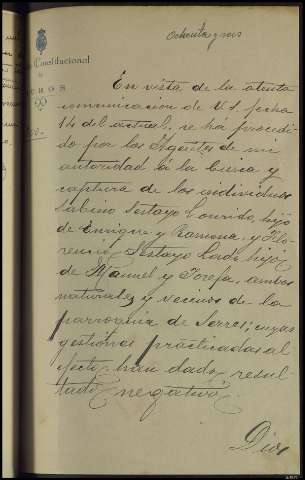 Ochenta y seis
Constitucional
DE
En vista de la atenta
comunicacion de V. S. fecha
14 del actual, se há procedi
do por los Agentes de mi
autoridad á la busca y
captura de los individuos
Sabino Sestayo Lourido, hijo
de Enrique y Ramona, y Flo
rencio Sestayo hijo
de Manuel y Josefa, ambos
naturales y vecinos de la
parroquia de Serres; cuyas
gestiones practicadas al
efecto han dado resul
tado negativo.
Dios